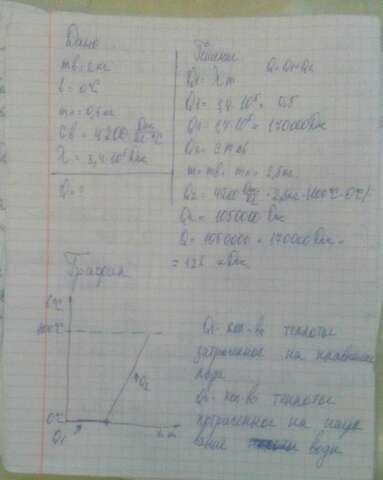 Дано
mв = 2 кг
t = 0°C
mл = 0,5 кг
Cв = 4200 Дж/кг·°C
λ = 3,4·10⁵ Дж
Q = ?
Решение
Q = Q₁+Q₂
Q₁ = λ m
Q₁ = 3,4·10⁵ · 0,5
Q₁ = 3,4·10⁵ = 170000 Дж
Q₂ = c m Δt
m = mв + mл = 2,5 кг
Q₂ = 4200 · 2,5кг · (100°C - 0°C)
Q₂ = 1050000 Дж
Q = 1050000 + 170000 Дж =
= 122 кДж
График
t°C
100°C
Q₂
0°C
Q₁
Q₁ - кол-во теплоты
затраченное на плавление
льда
Q₂ - кол-во теплоты
потраченное на нагре
вание воды